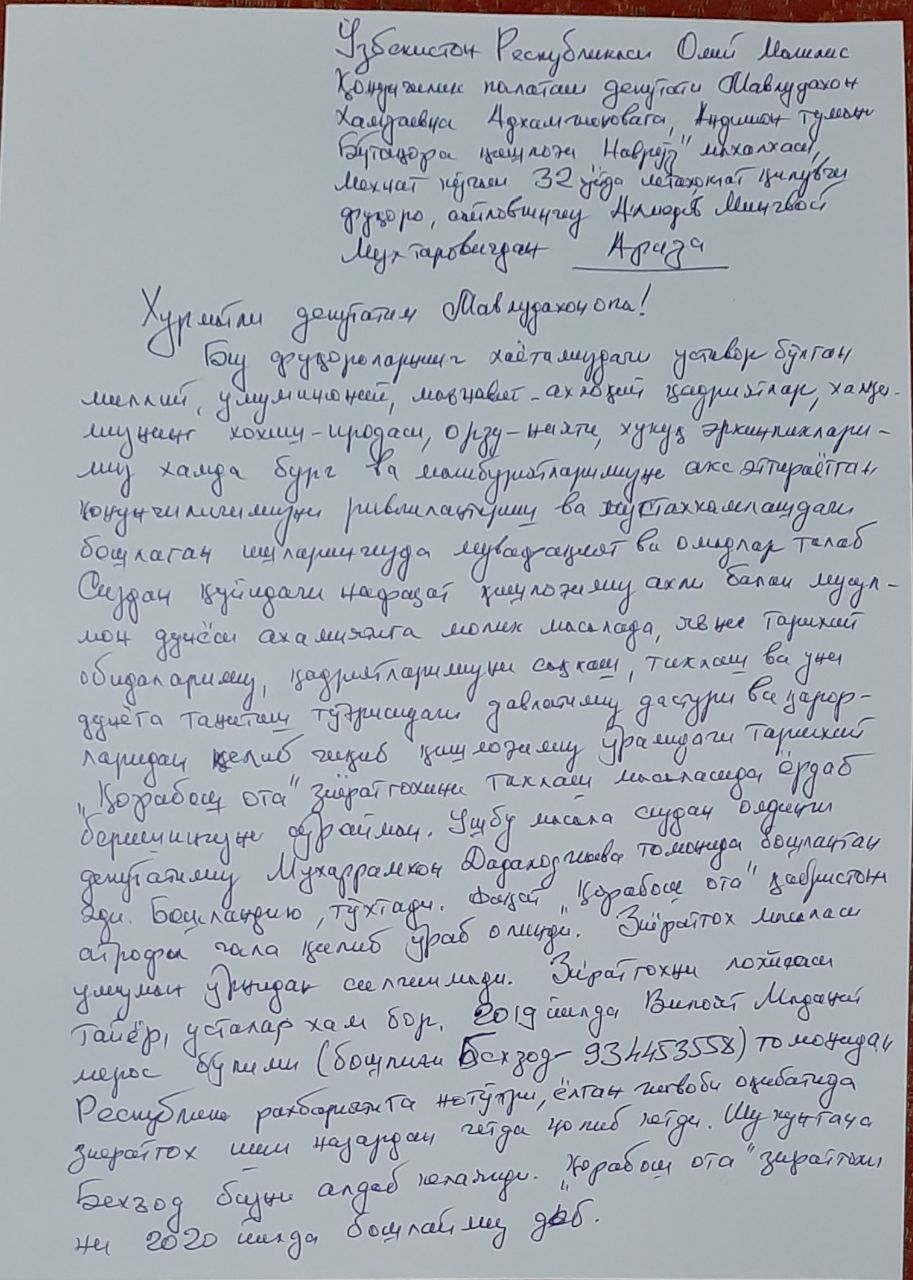 Ўзбекистон Республикаси Олий Мажлис
Қонунчилик палатаси депутати Мавлудахон
Хамзаевна Адхамжоновага, Андижон туман
Бутақора қишлоғи "Наврўз" махалласи,
Мехнат кўчаси 32 уйда истиқомат қилувчи
фуқоро, сайловчингиз Ахмедов Мингбой
Мухтаровичдан Ариза
Хурматли депутатим Мавлудахон опа!
Биз фуқороларнинг хаётимиздаги устивор бўлган
миллий, умуминсоний, маънавий-ахлоқий қадриятлар, халқи-
мизнинг хохиш-иродаси, орзу-нияти, хуқуқ эркинликлари-
миз хамда бурч ва мажбуриятларимизни акс эттираётган
қонунчилигимизни ривжлантириш ва мустахкамлашдаги
бошлаган ишларингизда мувафақият ва омадлар тилаб
Сиздан қуйидаги нафақат қишлоғимиз ахли балки мусул-
мон дунёси ахамиятига молик масалада, яъни тарихий
обидаларимиз, қадриятларимизни сақлаш, тиклаш ва уни
дунёга танитиш тўғрисидаги давлатимиз дастури ва қарор-
ларидан келиб чиқиб қишлоғимиз ўрамидаги тарихий
"Қорабош ота" зиёратгохини тиклаш масаласида ёрдаб
беришингизни сўрайман. Ушбу масала сиздан олдинги
депутатимиз Мухаррамхон Дадаходжаева томонида бошланган
эди. Бошландию, тўхтади. Фақат "Қорабош ота" қабристон
атрофи чала қилиб ўраб олинди. Зиёратгох масаласи
умуман ўрнидан силжимади. Зиёратгохни лойихаси
тайёр, усталар хам бор. 2019 йилда Вилоят Маданий
мерос бўлими (бошлиғи Бехзод - 934453558) томонидан
Республика рахбариятига нотўғри, ёлғон жавоби оқибатида
зиёратгох иши назардан четда қолиб кетди. Шу кунгача
Бехзод бизни алдаб келаяпди. "Қорабош ота" зиёратгохи
ни 2020 йилда бошлаймиз деб.